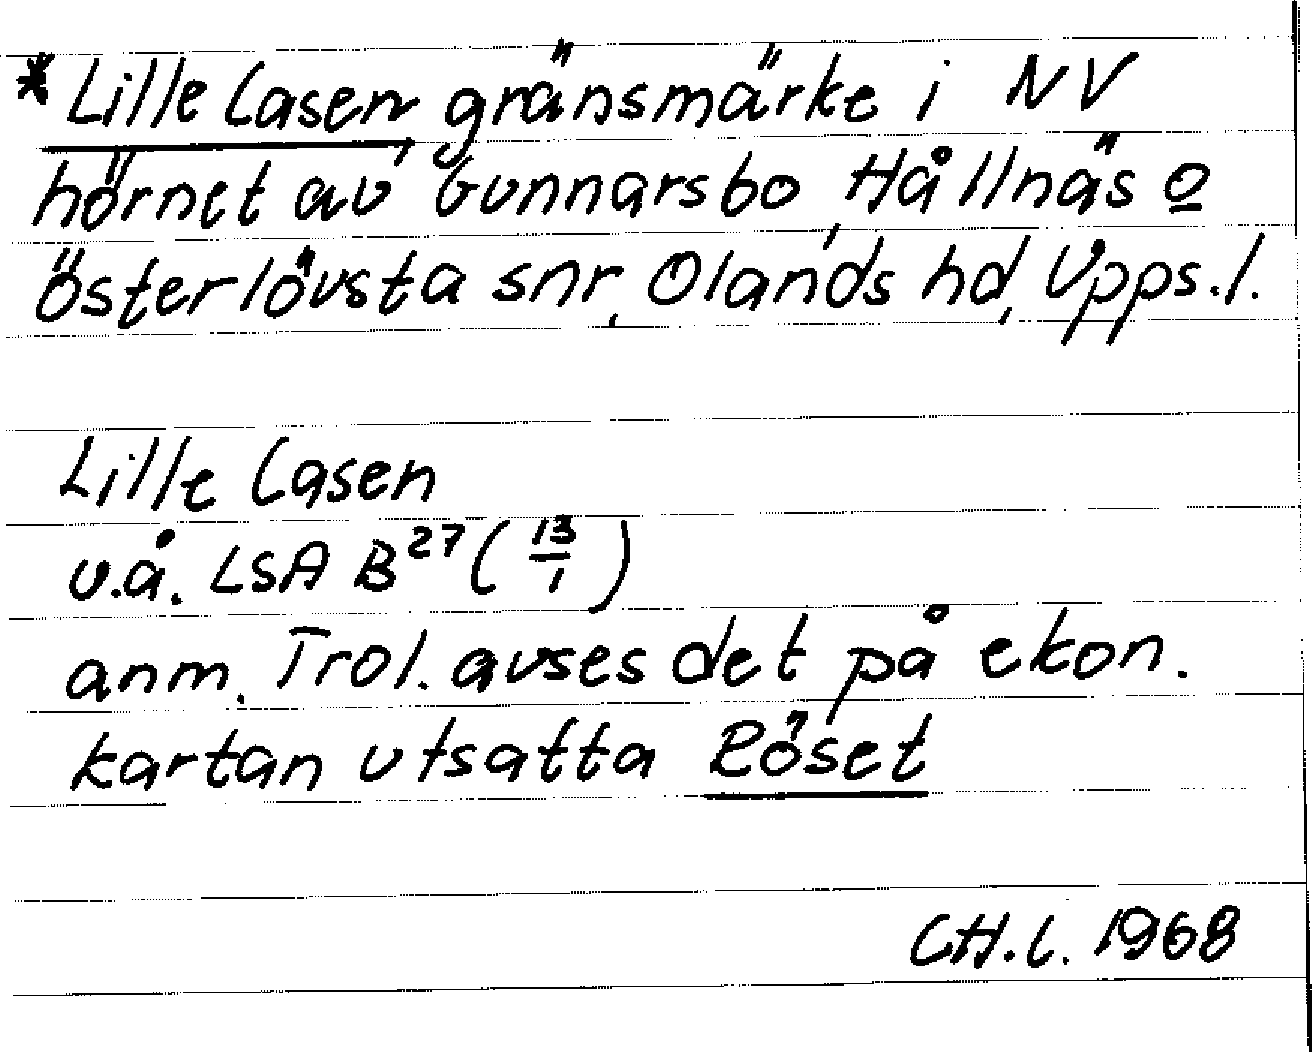 * Lille Casen, gränsmärke i NV
hörnet av Gunnarsbo, Hållnäs o
österlövsta snr, Olands hd, Upps.l.
Lille Casen
u.å. LSA B²⁷ (13/1)
anm. Trol. avses det på ekon.
kartan utsatta Röset
CH.L. 1968